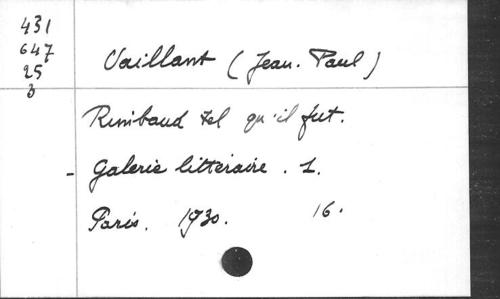 431
647
25
3
Vaillant (Jean-Paul)
Rimbaud tel qu'il fut.
- Galerie littéraire. 1.
Paris. 1930. 16.